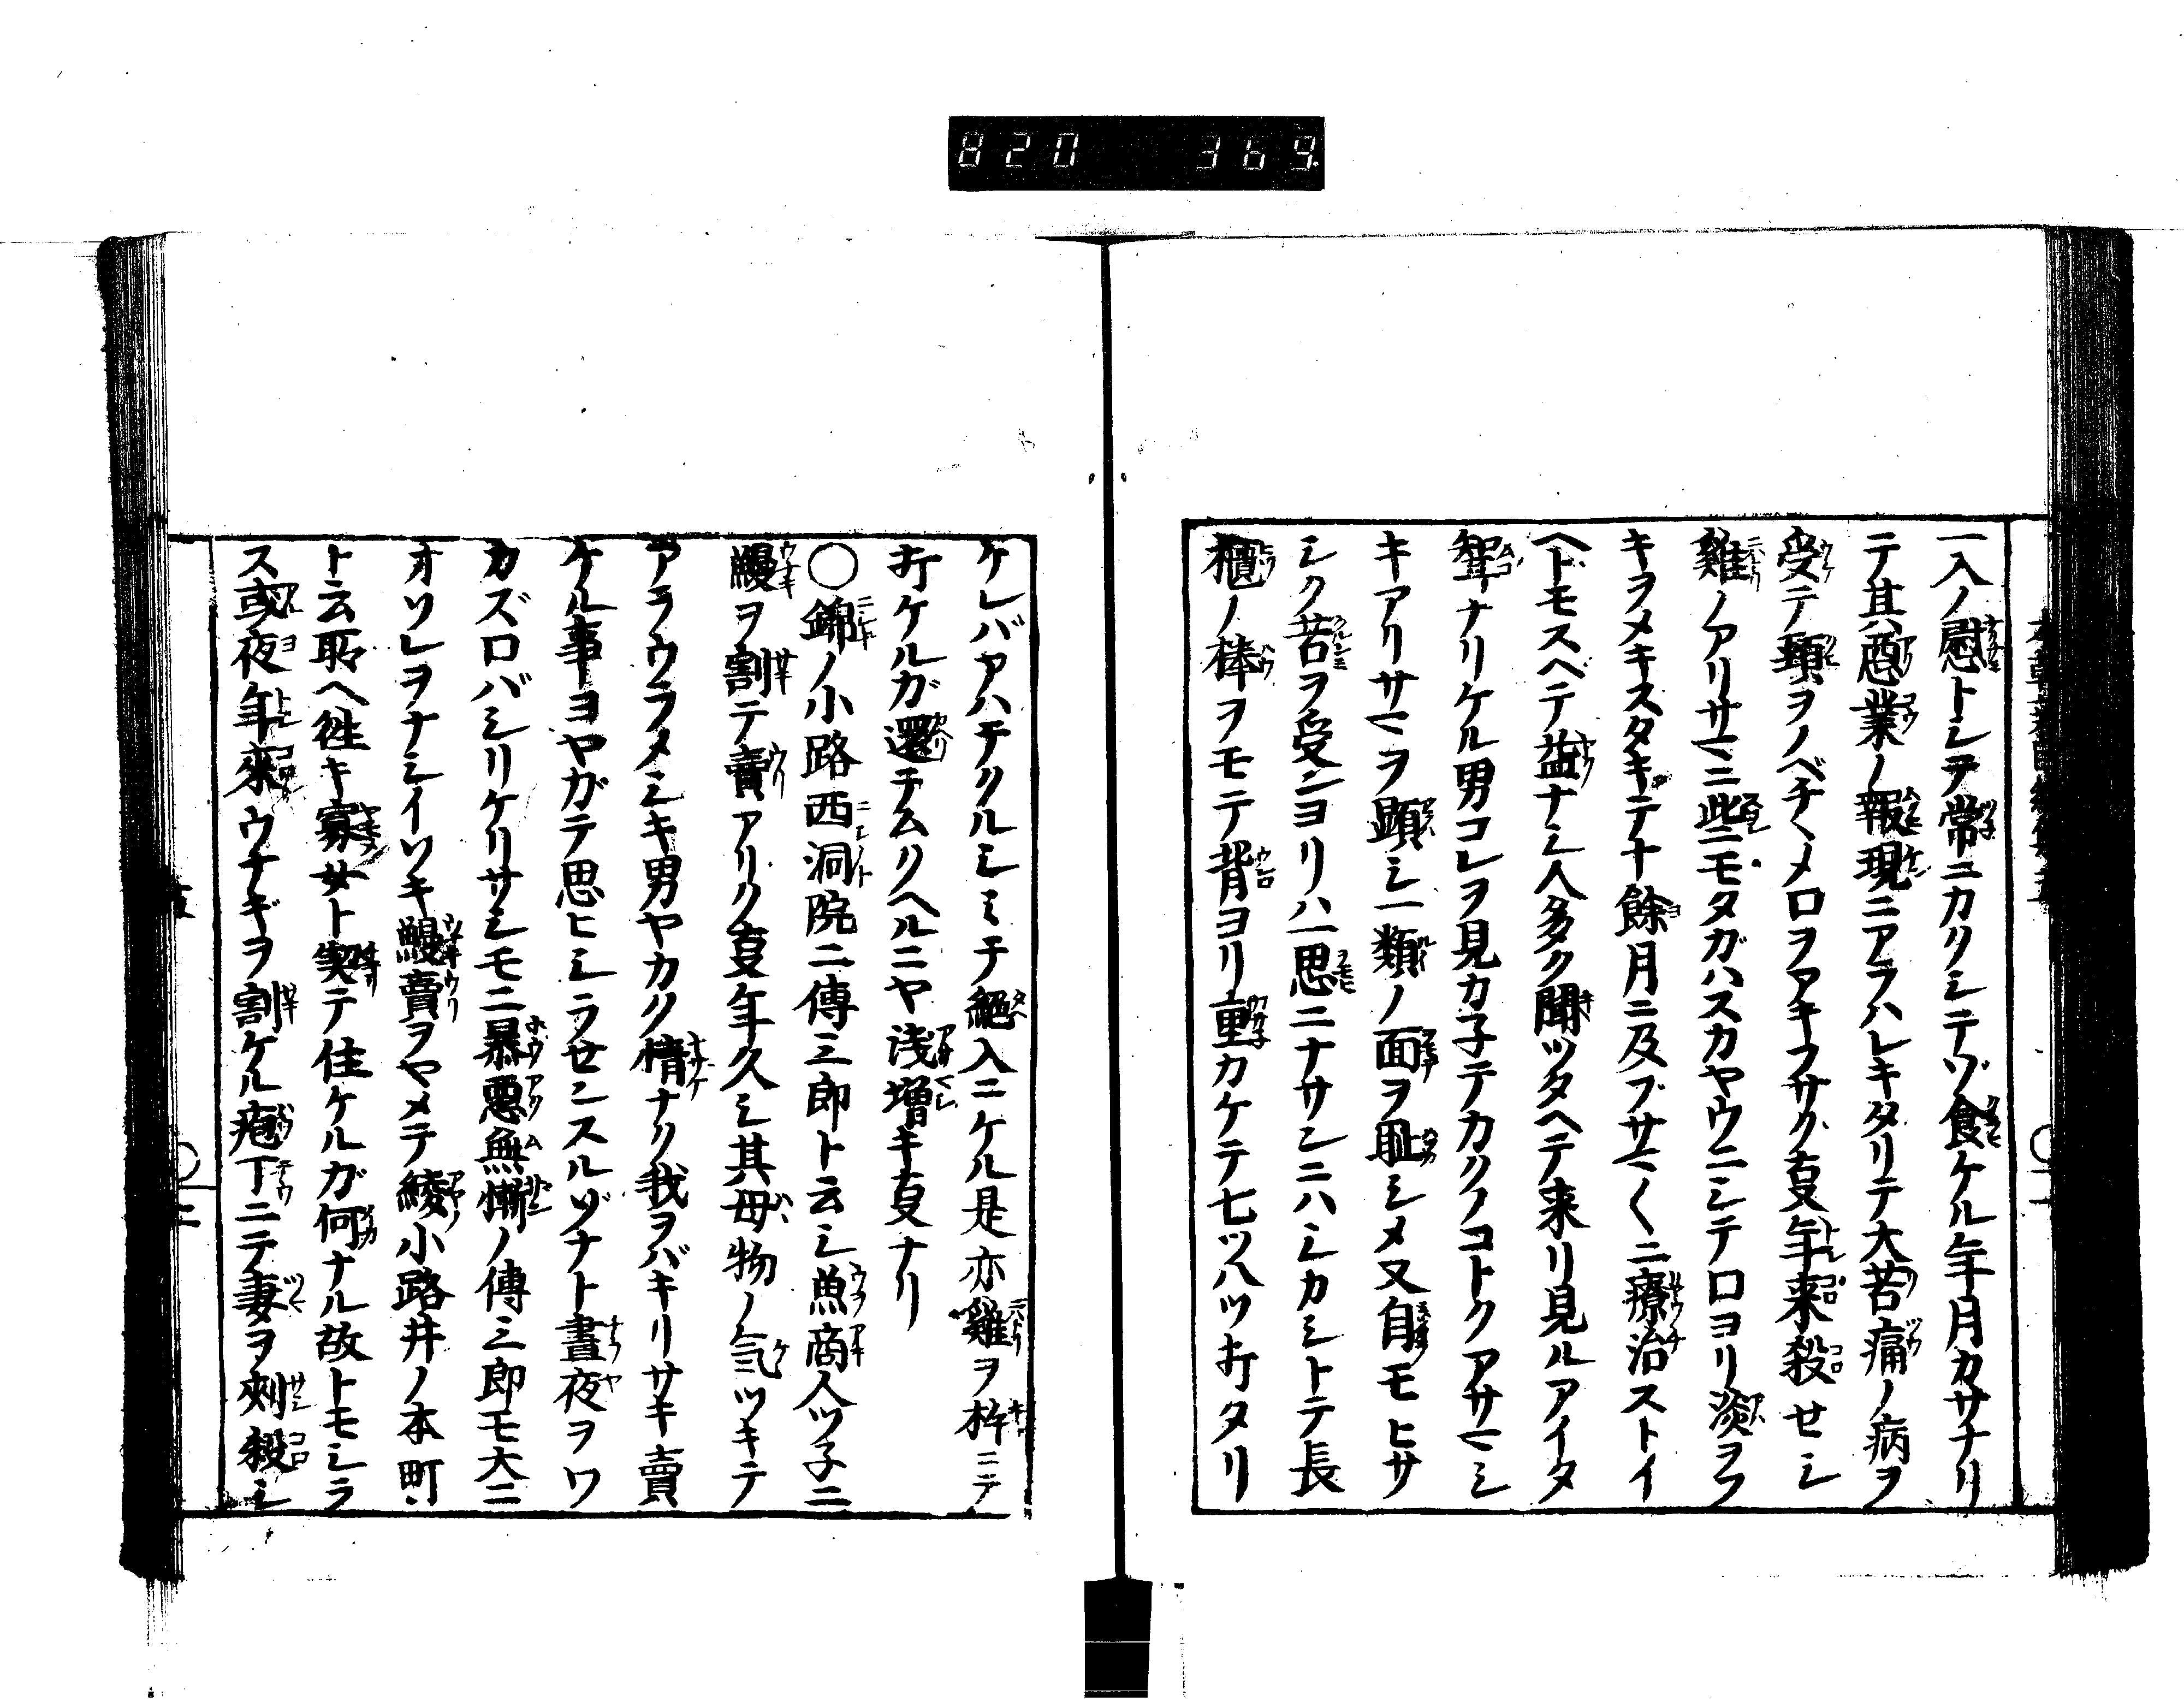 820 369
一入ノ慰トシテ常ニカクシテゾ食ケル年月カサナリ
テ其惡業ノ報現ニアラハレキタリテ大苦痛ノ病ヲ
受テ頸ヲノベチヽメ口ヲアキフサク亊年来殺セシ
雞ノアリサマニ些ニモタガハスカヤウニシテ口ヨリ淡ヲワ
キヲメキスタキテ十餘月ニ及ブサマ〱ニ療治ストイ
ヘトモスベテ益ナシ人多ク聞ツタヘテ来リ見ルアイタ
聟ナリケル男コレヲ見カ子テカクノコトクアサマシ
キアリサマヲ顕シ一類ノ面ヲ耻シメ又自モヒサ
シク苦ヲ受ンヨリハ一思ニナサンニハシカシトテ長
櫃ノ棒ヲモテ背ヨリ重カケテ七ツ八ツ打タリ
ケレバアハテクルシミテ絕入ニケル是亦雞ヲ杵ニテ
打ケルガ還テムクヘルニヤ浅増キ亊ナリ
〇錦ノ小路西洞院ニ傳三郎ト云シ魚商人ツ子ニ
鰻ヲ割テ賣アリク亊年久シ其母物ノ気ツキテ
アラウラメシキ男ヤカク情ナク我ヲバキリサキ賣
ケル事ヨヤガテ思ヒシラセンスルゾナト晝夜ヲワ
カズロバシリケリサシモニ暴惡無慚ノ傳三郎モ大ニ
オソレヲナシイソキ鰻賣ヲヤメテ綾小路井ノ本町
ト云所ヘ徃キ寡女ト契テ住ケルガ何ナル故トモシラ
ス或夜年來ウナギヲ割ケル庖丁ニテ妻ヲ刺殺シ